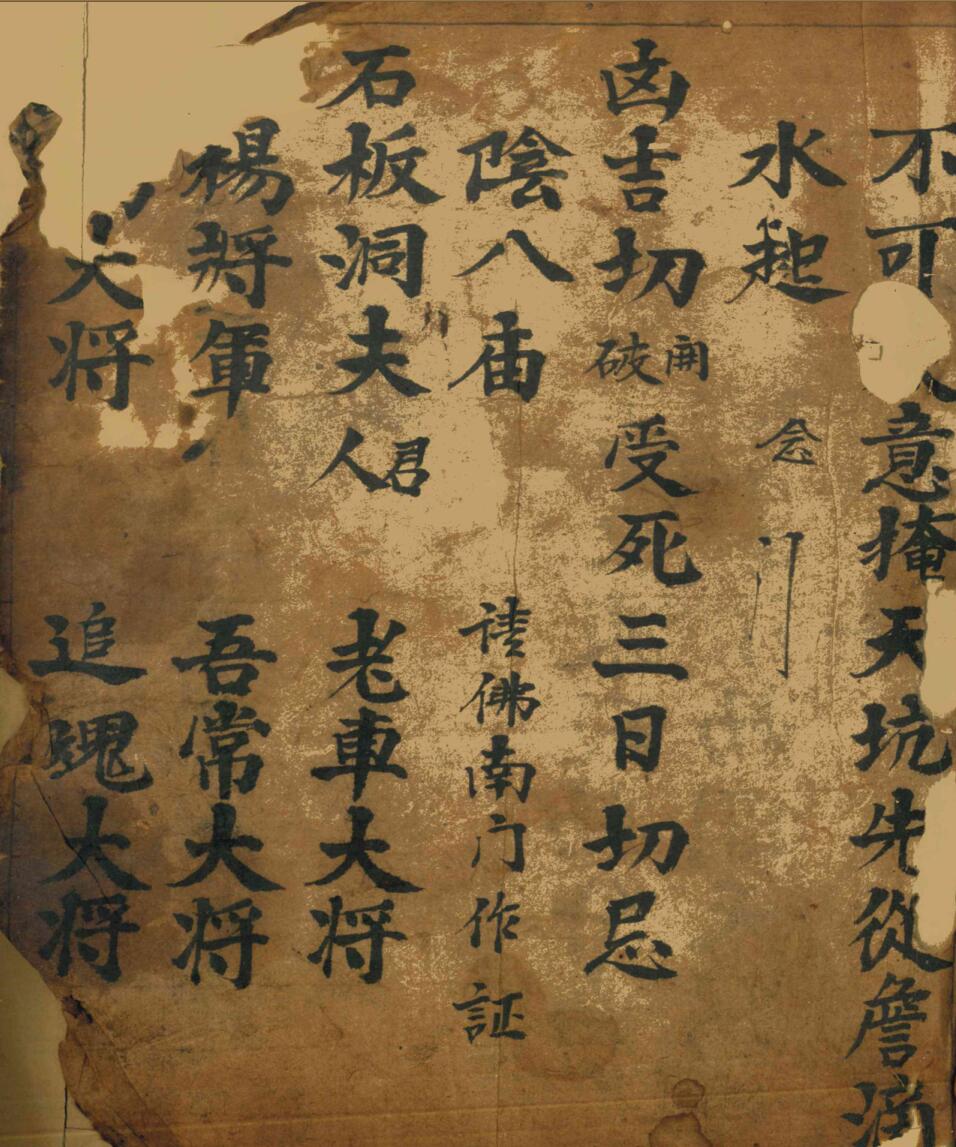 不可意掩天坑先從詹滴
水起 念
凶吉切破開受死三日切忌
陰八庙 请佛南门作証
石板洞夫人君 老車大将
楊将軍 吾常大将
大将 追魂大将